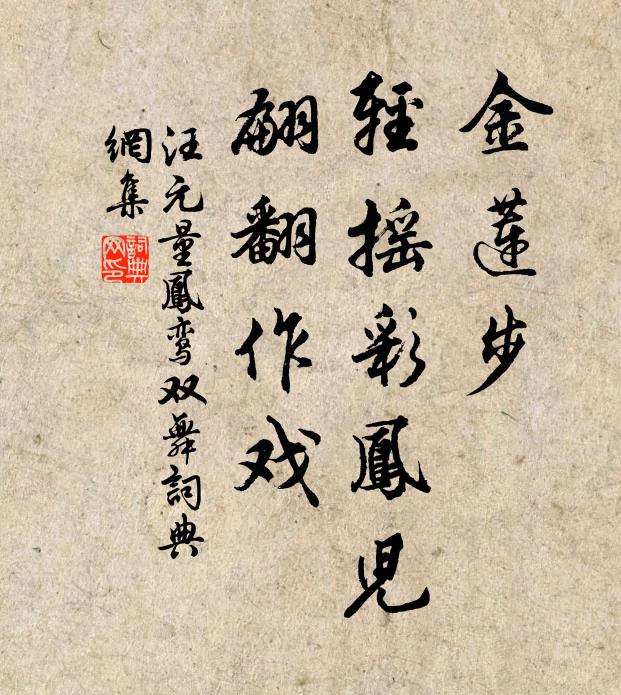 金蓮步
輕摇彩鳳兒
翩翻作戏
汪元量鳳鸾双舞詞典
網集
詞典
网印